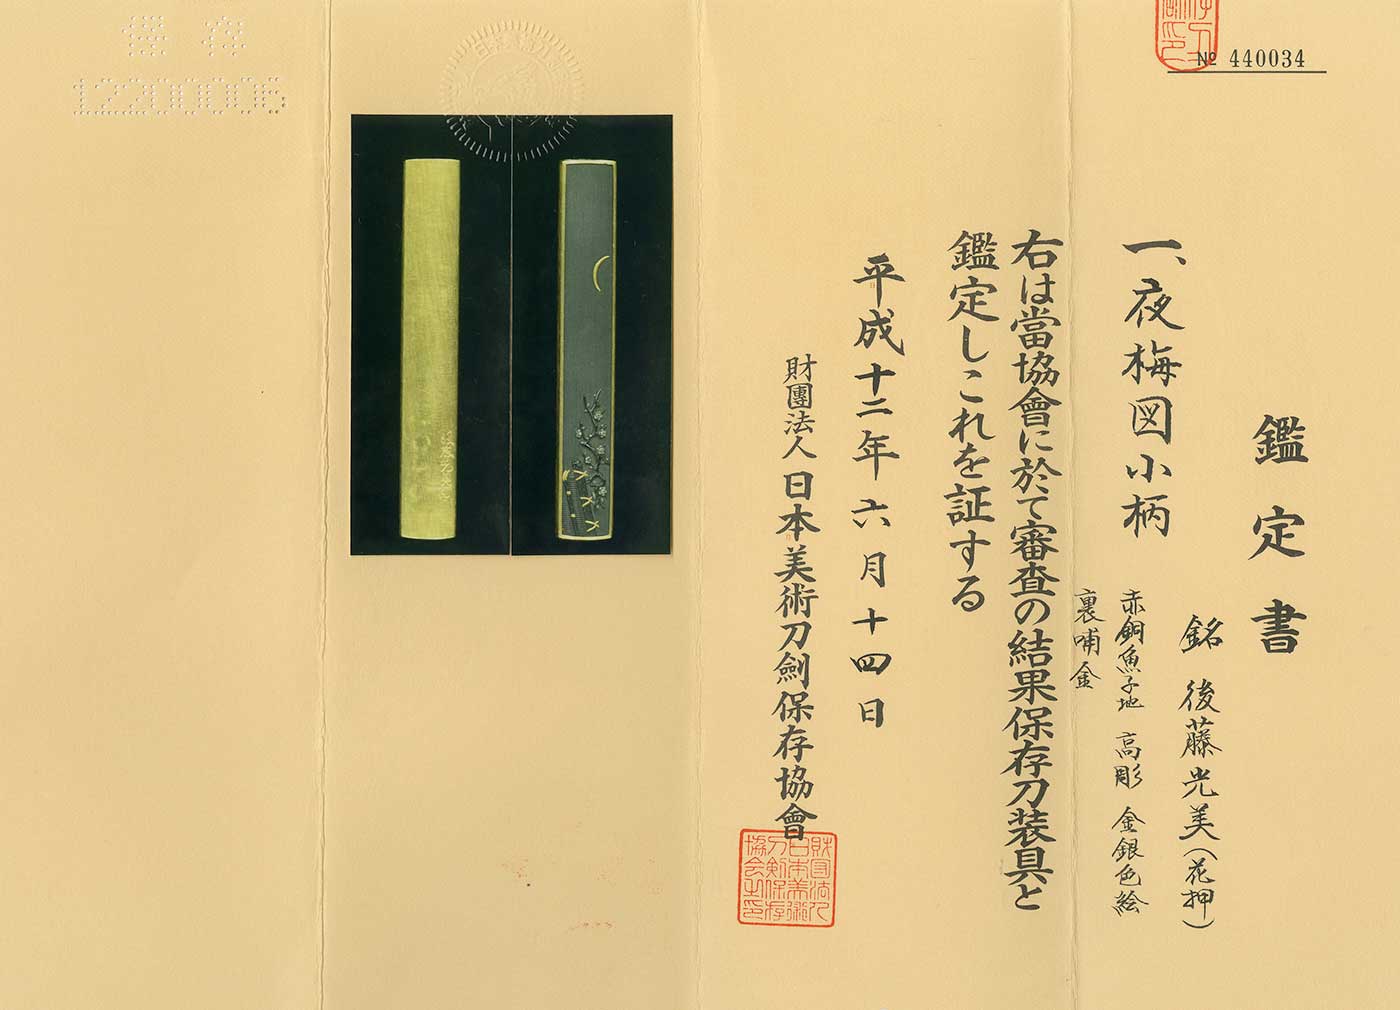 № 440034
鑑定書
一、夜梅図小柄
銘 後藤光美(花押)
赤銅魚子地 高彫 金銀色絵
裏哺金
右は當協會に於て審査の結果保存刀装具と
鑑定しこれを証する
平成十二年六月十四日
財團法人 日本美術刀劍保存協會
財団法人
日本美術
刀剣保存
協会之印
保存
12200006